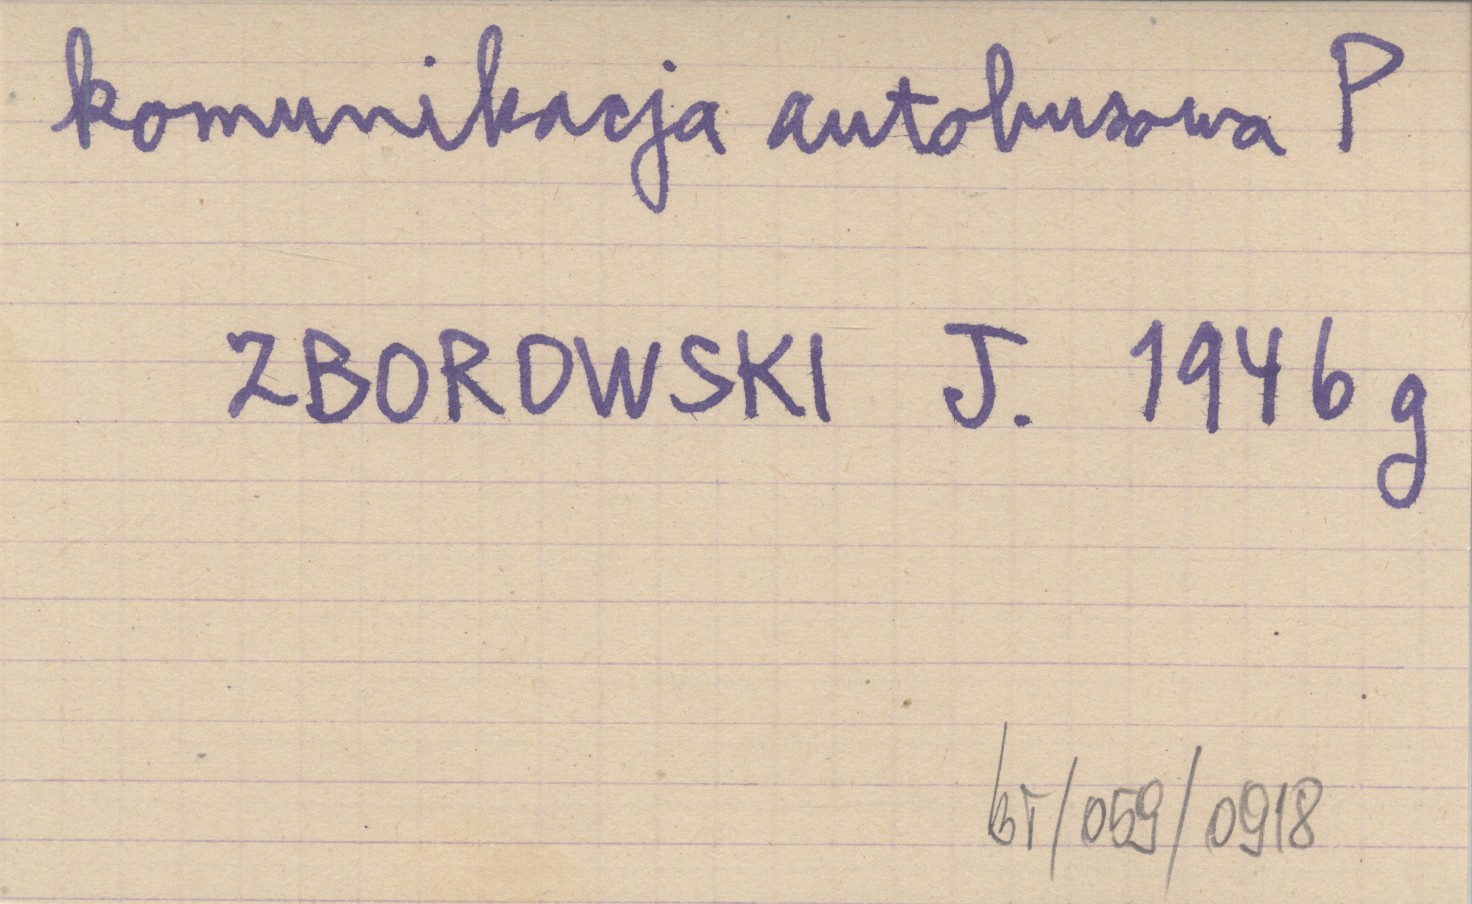 komunikacja autobusowa P
ZBOROWSKI J. 1946 g
/059/0918